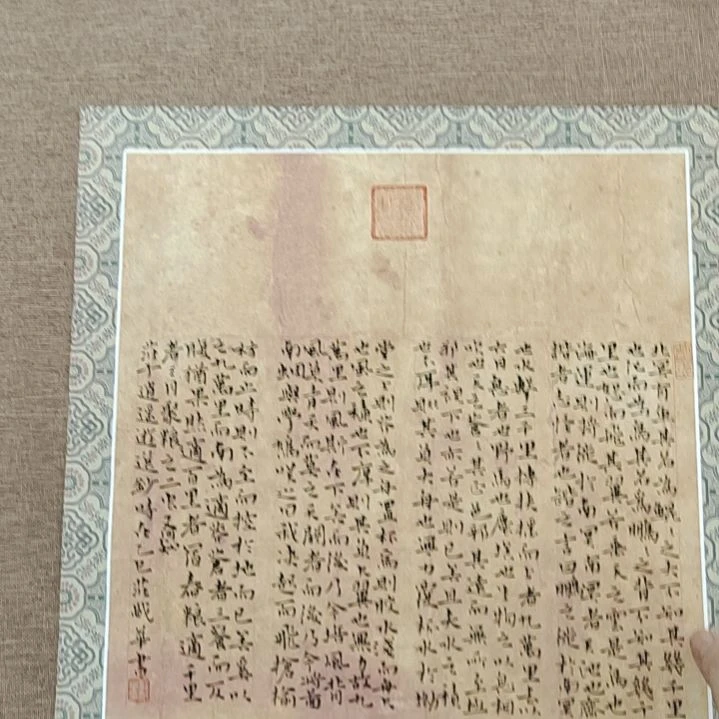 北冥有魚其名為鯤々之大不知其幾千里
也化而為鳥其名為鵬々之背不知其幾千
里也怒而飛其翼若垂天之雲是鳥也
海運則將徙於南冥南溟者天池也齊
諧者志怪者也諧之言曰鵬之徙於南冥
也水擊三千里摶扶搖而上者九萬里去以
六月息者也野馬也塵埃也生物之以息相
吹也天之蒼々其正色邪其遠而無所至極
邪其視下也亦若是則已矣且夫水之積
也不厚則其負大舟也無力覆杯水於坳
堂之上則芥為之舟置杯焉則膠水淺而舟大
也風之積也不厚則其負大翼也無力故九
萬里則風斯在下矣而後乃今培風背
風負青天而莫之夭閼者而後乃今將圖
南蜩與學鳩笑之曰我決起而飛搶榆
枋而止時則不至而控於地而已矣奚以
之九萬里而南為適莽蒼者三餐而反
腹猶果然適百里者宿舂糧適千里
者三月聚糧之二虫又何知
莊子逍遙遊選抄 乙巳莊 華書